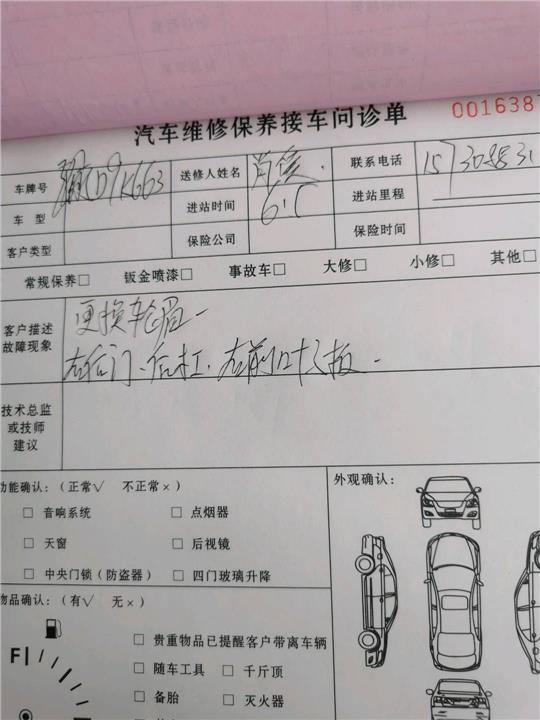 汽车维修保养接车问诊单
001638
车牌号 D9K663 送修人姓名 联系电话
车 型 进站时间 6.5 进站里程
客户类型 保险公司 保险时间
常规保养□ 钣金喷漆□ 事故车□ 大修□ 小修□ 其他□
客户描述
故障现象
更换轮眉
右后门、后杠、右前叶子板
技术总监
或技师
建议
功能确认：（正常√ 不正常×）
□ 音响系统 □ 点烟器
□ 天窗 □ 后视镜
□ 中央门锁（防盗器） □ 四门玻璃升降
外观确认：
物品确认：（有√ 无×）
□ 贵重物品已提醒客户带离车辆
□ 随车工具 □ 千斤顶
□ 备胎 □ 灭火器
F